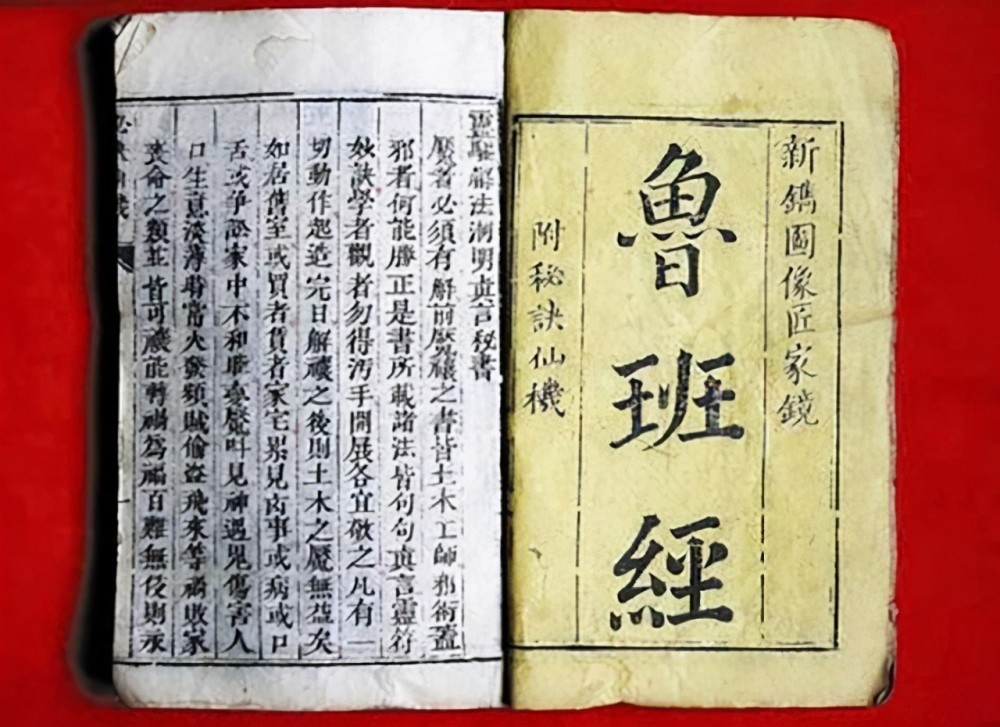 新鐫圖像匠家鏡
魯班經
附秘訣仙機
靈驅解法洞明真言秘書
魘者必須有解前魘禳之書皆土木工師邪術蓋
邪者何能勝正是書所載諸法皆句句真言靈符
妙訣學者觀者勿得污手開展各宜敬之凡有一
切動作起造完日解禳之後則土木之魘無益矣
如居舊至或買者賃者家宅累見凶事或病或口
舌或爭訟家中不和睡夢魘叫見神遇鬼傷害人
口生意淡薄尋常火發類賊偷盜飛來等禍敗家
喪命之類並皆可禳能轉禍為福百難無侵則永